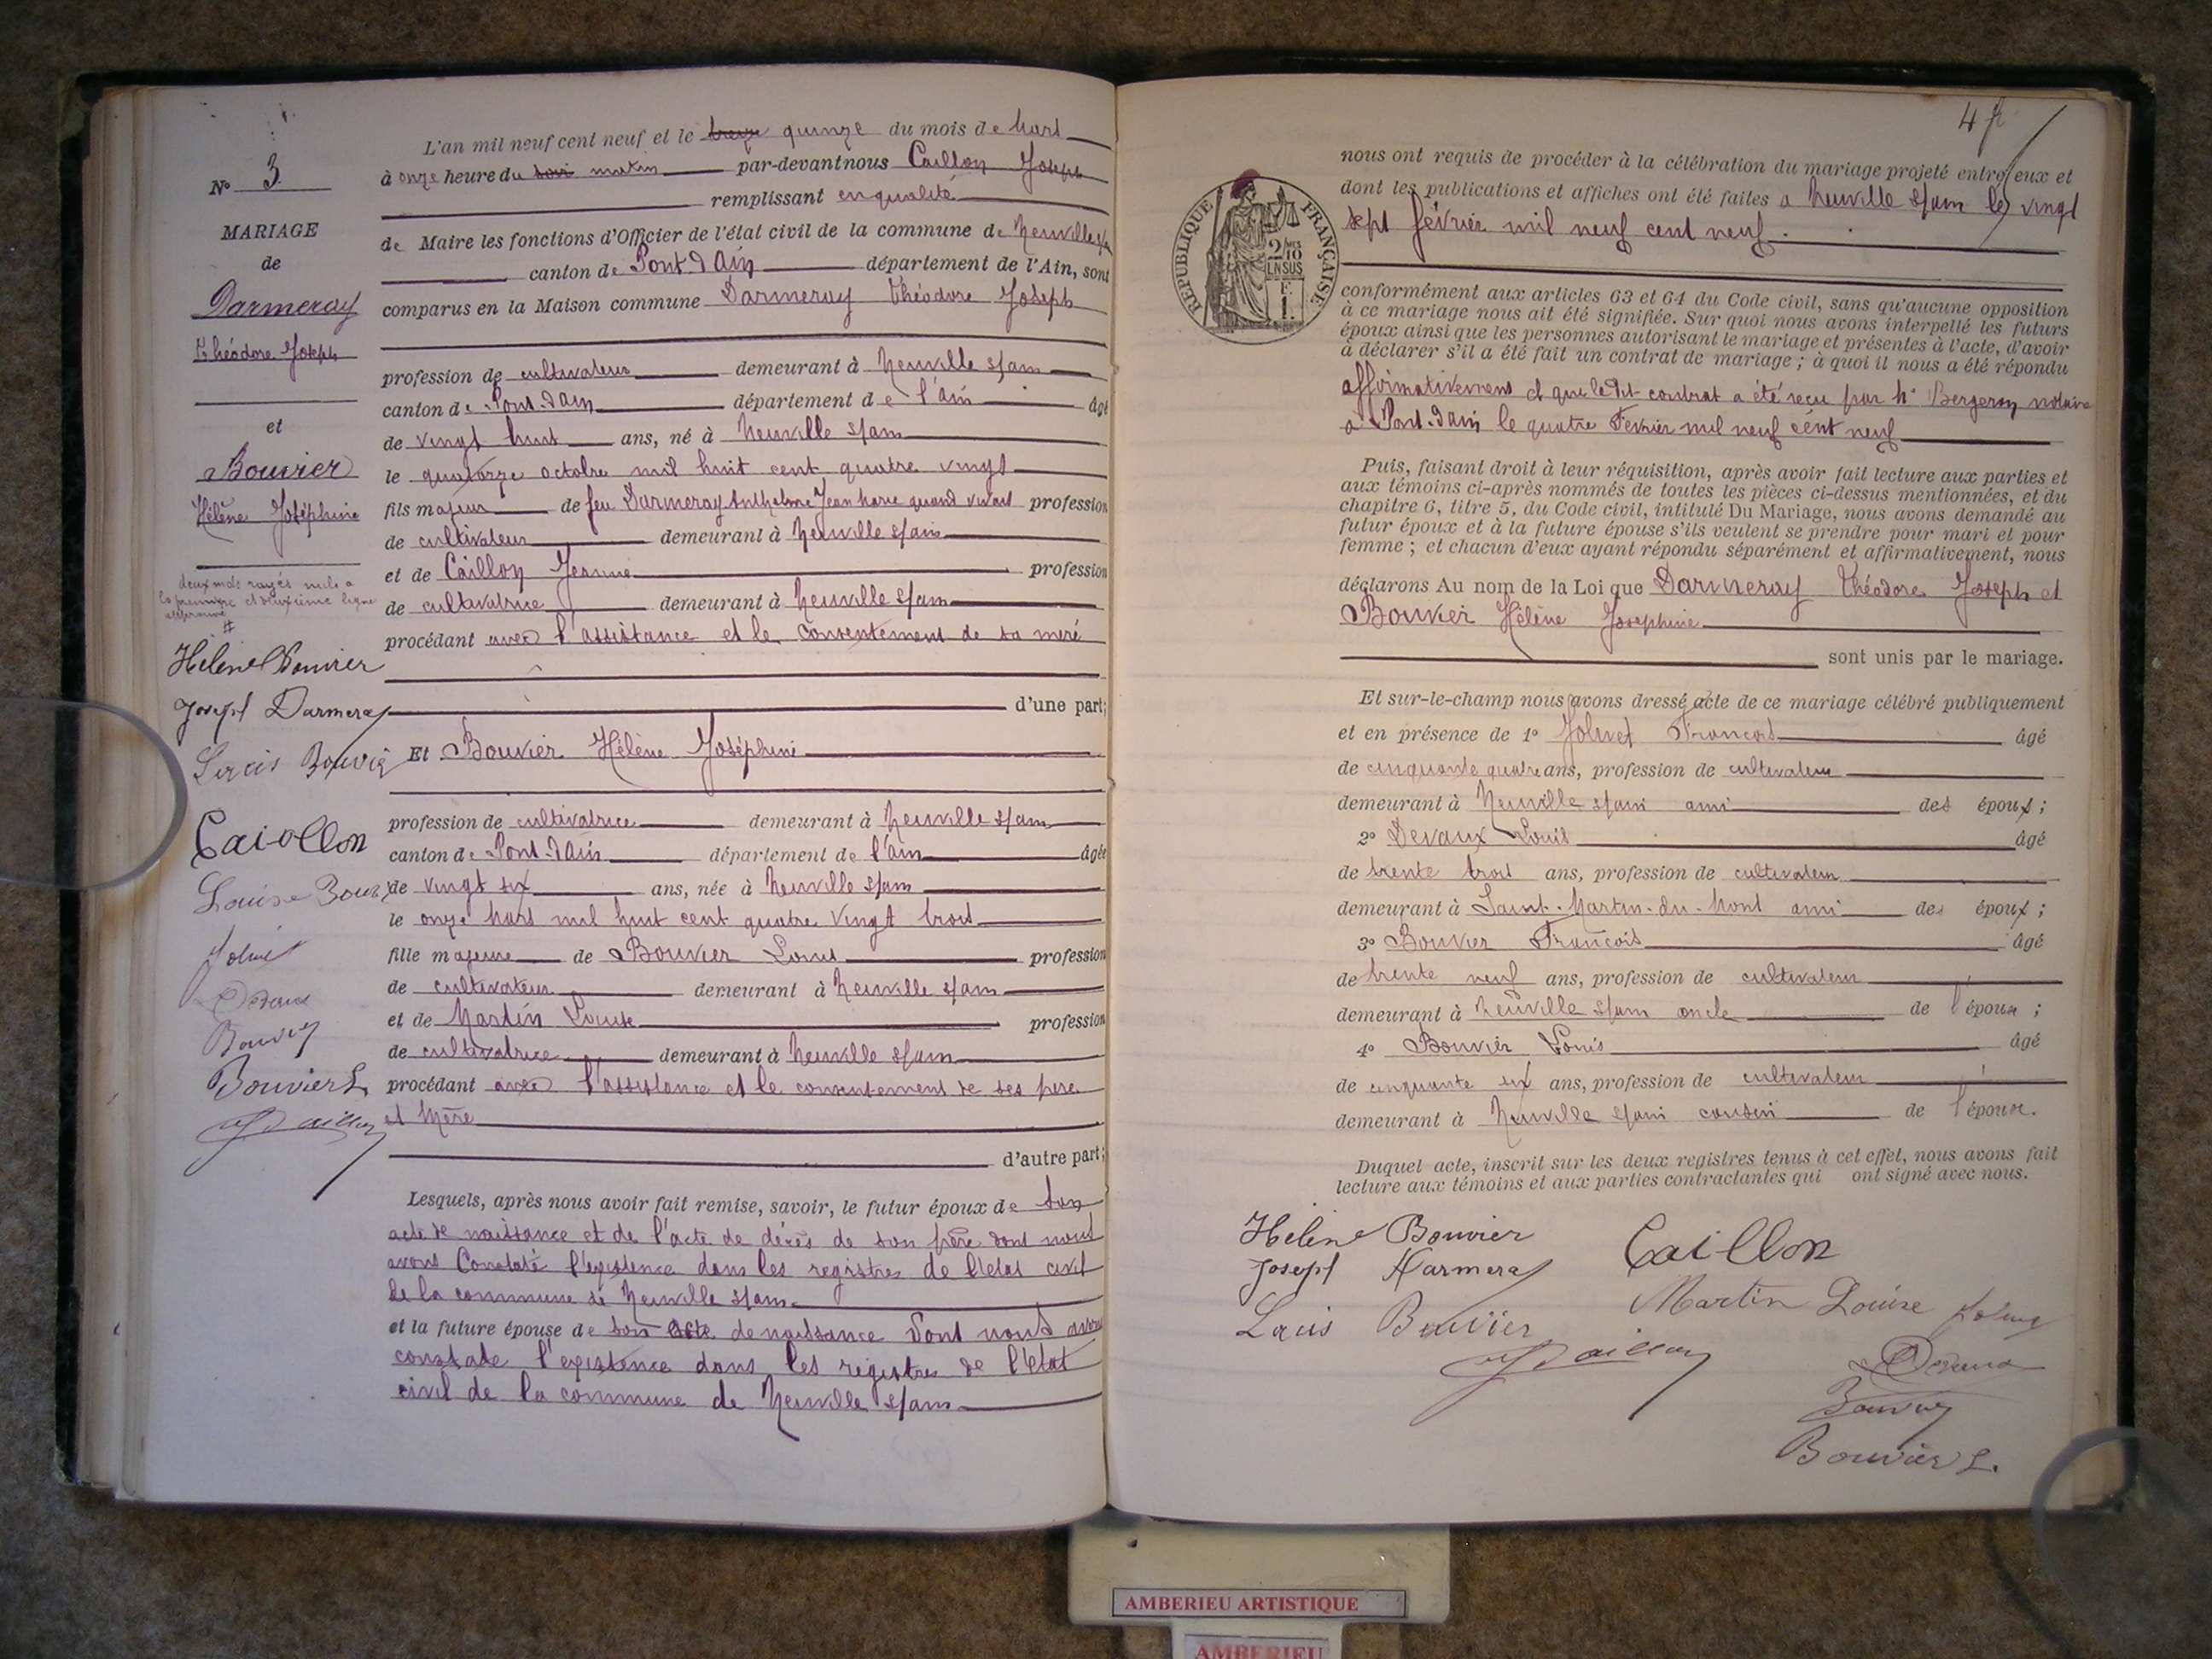 N° 3
MARIAGE
de
Darmeray
Théodore Joseph
et
Bouvier
Hélène Joséphine
deux mots rayés nuls a
la première et deuxième ligne
Hélène Bouvier
Joseph Darmeray
Louis Bouvier
Caiollon
Louise Bouvier
Bouvier
Bouvier L
L'an mil neuf cent neuf et le treize quinze du mois de Mars
à onze heure du soir matin par-devant nous Caillon Joseph
remplissant en qualité
de Maire les fonctions d'Officier de l'état civil de la commune de Neuville s/a
canton de Pont-d'Ain département de l'Ain, sont
comparus en la Maison commune Darmeray Théodore Joseph
profession de cultivateur demeurant à Neuville s/ain
canton de Pont-d'Ain département de l'ain âgé
de vingt huit ans, né à Neuville s/ain
le quatorze octobre mil huit cent quatre vingt
fils majeur de feu Darmeray Anthelme Jean Marie quand vivait profession
de cultivateur demeurant à Neuville s/ain
et de Caillon Jeanne profession
de cultivatrice demeurant à Neuville s/ain
procédant avec l'assistance et le consentement de sa mère
d'une part;
Et Bouvier Hélène Joséphine
profession de cultivatrice demeurant à Neuville s/ain
canton de Pont-d'Ain département de l'ain âgée
de vingt six ans, née à Neuville s/ain
le onze Mars mil huit cent quatre vingt trois
fille majeure de Bouvier Louis profession
de cultivateur demeurant à Neuville s/ain
et de Martin Louise profession
de cultivatrice demeurant à Neuville s/ain
procédant avec l'assistance et le consentement de ses père
et Mère
d'autre part;
Lesquels, après nous avoir fait remise, savoir, le futur époux de son
acte de naissance et de l'acte de décès de son père dont nous
avons Constaté l'existence dans les registres de l'état civil
de la commune de Neuville s/ain
et la future épouse de son acte de naissance dont nous avons
constaté l'existence dans les registres de l'état
civil de la commune de Neuville s/ain
RÉPUBLIQUE FRANÇAISE
2/10 EN SUS
F. 1.
nous ont requis de procéder à la célébration du mariage projeté entre eux et
dont les publications et affiches ont été faites à Neuville s/ain le vingt
sept février mil neuf cent neuf.
conformément aux articles 63 et 64 du Code civil, sans qu'aucune opposition
à ce mariage nous ait été signifiée. Sur quoi nous avons interpellé les futurs
époux ainsi que les personnes autorisant le mariage et présentes à l'acte, d'avoir
à déclarer s'il a été fait un contrat de mariage ; à quoi il nous a été répondu
affirmativement et que ledit contrat a été reçu par Me Bergeron notaire
à Pont-d'Ain le quatre Février mil neuf cent neuf
Puis, faisant droit à leur réquisition, après avoir fait lecture aux parties et
aux témoins ci-après nommés de toutes les pièces ci-dessus mentionnées, et du
chapitre 6, titre 5, du Code civil, intitulé Du Mariage, nous avons demandé au
futur époux et à la future épouse s'ils veulent se prendre pour mari et pour
femme ; et chacun d'eux ayant répondu séparément et affirmativement, nous
déclarons Au nom de la Loi que Darmeray Théodore Joseph et
Bouvier Hélène Josephine
sont unis par le mariage.
Et sur-le-champ nous avons dressé acte de ce mariage célébré publiquement
et en présence de 1° Jolivet François âgé
de cinquante quatre ans, profession de cultivateur
demeurant à Neuville s/ain ami des époux ;
2° Devaux Louis âgé
de trente trois ans, profession de cultivateur
demeurant à Saint-Martin-du-Mont ami des époux ;
3° Bouvier François âgé
de trente neuf ans, profession de cultivateur
demeurant à Neuville s/ain oncle de l'épouse ;
4° Bouvier Louis âgé
de cinquante six ans, profession de cultivateur
demeurant à Neuville s/ain cousin de l'épouse.
Duquel acte, inscrit sur les deux registres tenus à cet effet, nous avons fait
lecture aux témoins et aux parties contractantes qui ont signé avec nous.
Hélène Bouvier Caillon
Joseph Darmeray
Martin Louise
Louis Bouvier
Bouvier L.
AMBERIEU ARTISTIQUE
AMBERIEU